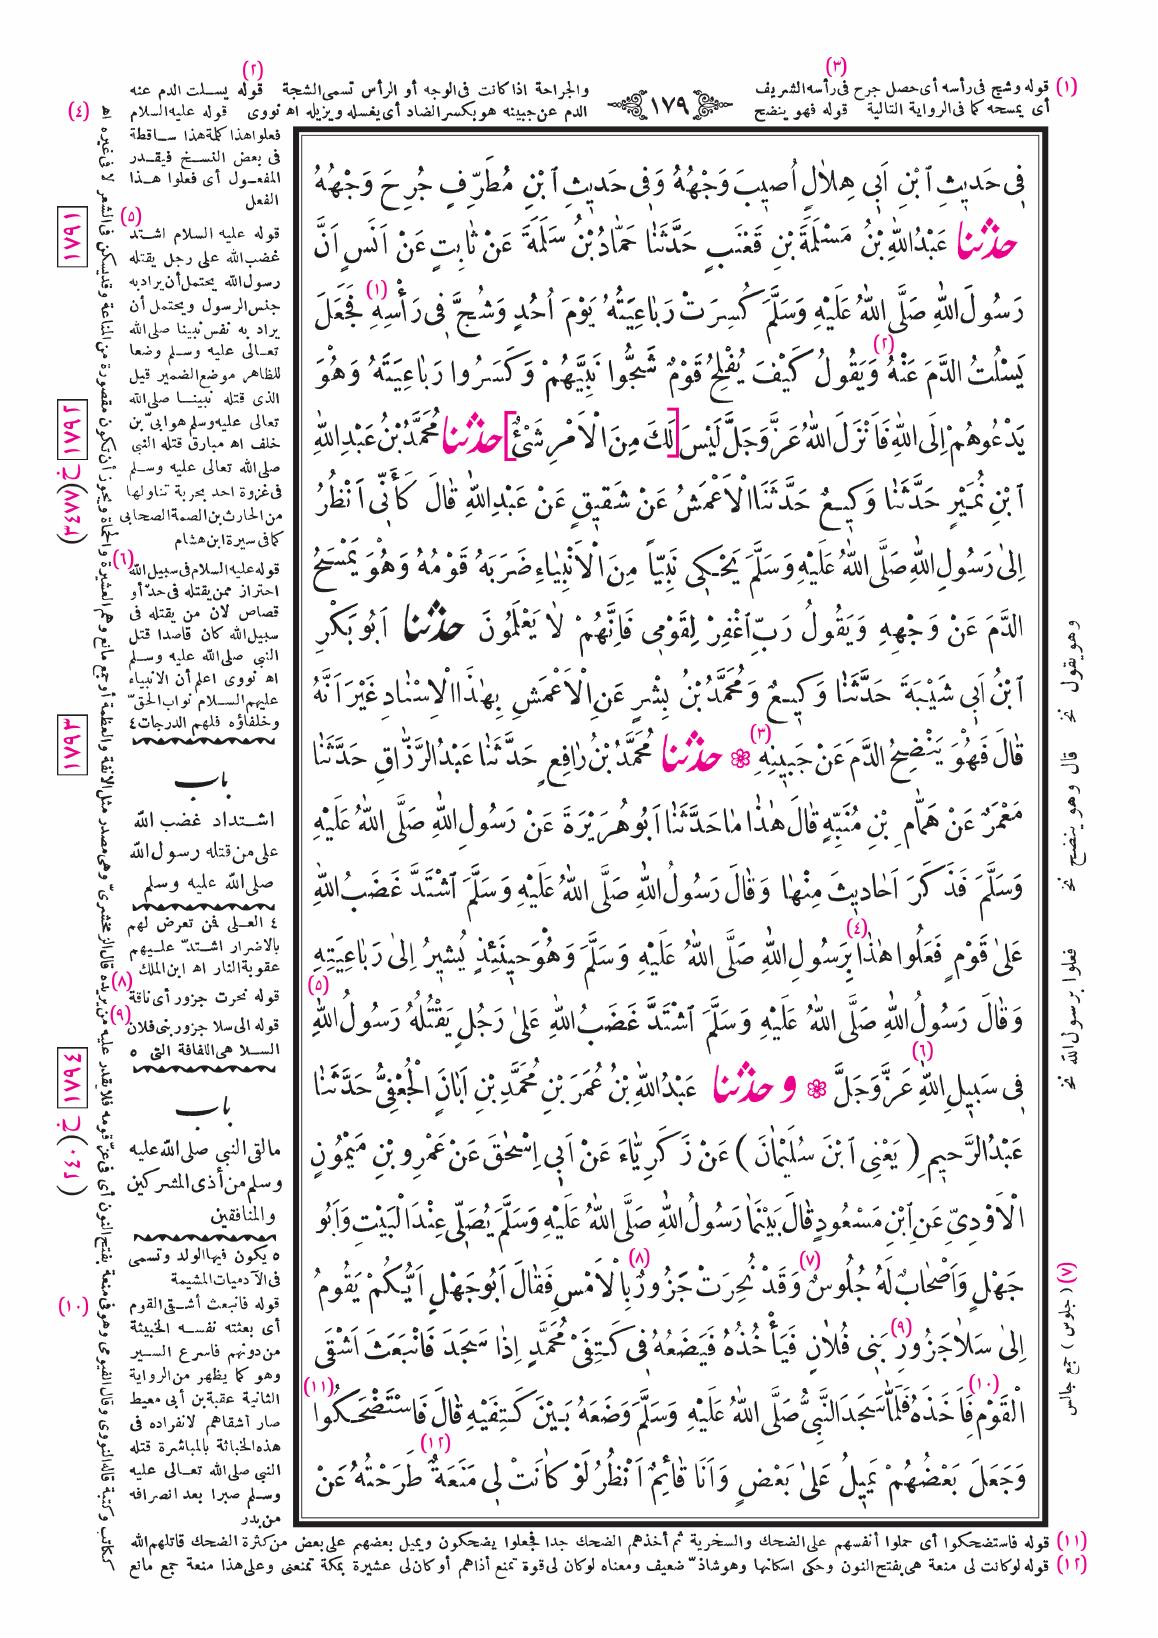 (٣)
(٢)
(١) قوله وشج فى رأسه أى حصل جرح فى رأسه الشريف
أى يمسحه كما فى الرواية التالية قوله فهو ينضح
١٧٩
والجراحة اذا كانت فى الوجه أو الرأس تسمى الشجة قوله يسلت الدم عنه
الدم عن جبينه هو بكسر الضاد أى يغسله ويزيله اه نووى قوله عليه السلام
(٤)
فِى حَدِيثِ ٱبْنِ اَبِى هِلاٰلٍ اُصِيبَ وَجْهُهُ وَفِى حَدِيثِ ٱبْنِ مُطَرِّفٍ جُرِحَ وَجْهُهُ
حدثنا عَبْدُ اللّٰهِ بْنُ مَسْلَمَةَ بْنِ قَعْنَبٍ حَدَّثَنٰا حَمّٰادُ بْنُ سَلَمَةَ عَنْ ثٰابِتٍ عَنْ اَنَسٍ اَنَّ
رَسُولَ اللّٰهِ صَلَّى اللّٰهُ عَلَيْهِ وَسَلَّمَ كُسِرَتْ رَبٰاعِيَتُهُ يَوْمَ اُحُدٍ وَشُجَّ فِى رَأْسِهِ (١) فَجَعَلَ
يَسْلُتُ الدَّمَ عَنْهُ (٢) وَيَقُولُ كَيْفَ يُفْلِحُ قَوْمٌ شَجُّوا نَبِيَّهُمْ وَكَسَرُوا رَبٰاعِيَتَهُ وَهُوَ
يَدْعُوهُمْ اِلَى اللّٰهِ فَاَنْزَلَ اللّٰهُ عَزَّ وَجَلَّ لَيْسَ [لَكَ مِنَ الْاَمْرِ شَىْءٌ] حدثنا مُحَمَّدُ بْنُ عَبْدِ اللّٰهِ
ٱبْنِ نُمَيْرٍ حَدَّثَنٰا وَكِيعٌ حَدَّثَنَا الْاَعْمَشُ عَنْ شَقِيقٍ عَنْ عَبْدِ اللّٰهِ قٰالَ كَأَنِّى اَنْظُرُ
اِلىٰ رَسُولِ اللّٰهِ صَلَّى اللّٰهُ عَلَيْهِ وَسَلَّمَ يَحْكِى نَبِيّاً مِنَ الْاَنْبِيٰاءِ ضَرَبَهُ قَوْمُهُ وَهُوَ يَمْسَحُ
الدَّمَ عَنْ وَجْهِهِ وَيَقُولُ رَبِّ ٱغْفِرْ لِقَوْمِى فَاِنَّهُمْ لاٰ يَعْلَمُونَ حدثنا اَبُو بَكْرِ
ٱبْنُ اَبِى شَيْبَةَ حَدَّثَنٰا وَكِيعٌ وَمُحَمَّدُ بْنُ بِشْرٍ عَنِ الْاَعْمَشِ بِهٰذَا الْاِسْنٰادِ غَيْرَ اَنَّهُ
قٰالَ فَهُوَ يَنْضِحُ الدَّمَ عَنْ جَبِينِهِ (٣) ❁ حدثنا مُحَمَّدُ بْنُ رٰافِعٍ حَدَّثَنٰا عَبْدُ الرَّزّٰاقِ حَدَّثَنٰا
مَعْمَرٌ عَنْ هَمّٰامِ بْنِ مُنَبِّهٍ قٰالَ هٰذٰا مٰا حَدَّثَنٰا اَبُو هُرَيْرَةَ عَنْ رَسُولِ اللّٰهِ صَلَّى اللّٰهُ عَلَيْهِ
وَسَلَّمَ فَذَكَرَ اَحٰادِيثَ مِنْهٰا وَقٰالَ رَسُولُ اللّٰهِ صَلَّى اللّٰهُ عَلَيْهِ وَسَلَّمَ اشْتَدَّ غَضَبُ اللّٰهِ
عَلىٰ قَوْمٍ فَعَلُوا هٰذٰا (٤) بِرَسُولِ اللّٰهِ صَلَّى اللّٰهُ عَلَيْهِ وَسَلَّمَ وَهُوَ حِينَئِذٍ يُشِيرُ اِلىٰ رَبٰاعِيَتِهِ
وَقٰالَ رَسُولُ اللّٰهِ صَلَّى اللّٰهُ عَلَيْهِ وَسَلَّمَ اشْتَدَّ غَضَبُ اللّٰهِ عَلىٰ رَجُلٍ يَقْتُلُهُ رَسُولُ اللّٰهِ (٥)
فِى سَبِيلِ اللّٰهِ (٦) عَزَّ وَجَلَّ ❁ و حدثنا عَبْدُ اللّٰهِ بْنُ عُمَرَ بْنِ مُحَمَّدِ بْنِ اَبٰانَ الْجُعْفِىُّ حَدَّثَنٰا
عَبْدُ الرَّحِيمِ ( يَعْنِى ٱبْنَ سُلَيْمٰانَ ) عَنْ زَكَرِيّٰاءَ عَنْ اَبِى اِسْحٰقَ عَنْ عَمْرِو بْنِ مَيْمُونٍ
الْاَوْدِىِّ عَنِ ٱبْنِ مَسْعُودٍ قٰالَ بَيْنَمٰا رَسُولُ اللّٰهِ صَلَّى اللّٰهُ عَلَيْهِ وَسَلَّمَ يُصَلِّى عِنْدَ الْبَيْتِ وَاَبُو
جَهْلٍ وَاَصْحٰابٌ لَهُ جُلُوسٌ (٧) وَقَدْ نُحِرَتْ جَزُورٌ (٨) بِالْاَمْسِ فَقٰالَ اَبُو جَهْلٍ اَيُّكُمْ يَقُومُ
اِلىٰ سَلاٰ جَزُورِ (٩) بَنِى فُلاٰنٍ فَيَأْخُذُهُ فَيَضَعُهُ فِى كَتِفَىْ مُحَمَّدٍ اِذٰا سَجَدَ فَانْبَعَثَ اَشْقَى
الْقَوْمِ (١٠) فَاَخَذَهُ فَلَمّٰا سَجَدَ النَّبِىُّ صَلَّى اللّٰهُ عَلَيْهِ وَسَلَّمَ وَضَعَهُ بَيْنَ كَتِفَيْهِ قٰالَ فَاسْتَضْحَكُوا (١١)
وَجَعَلَ بَعْضُهُمْ يَمِيلُ عَلىٰ بَعْضٍ وَاَنَا قٰائِمٌ اَنْظُرُ لَوْ كٰانَتْ لِى مَنَعَةٌ (١٢) طَرَحْتُهُ عَنْ
فعلوا هذا كلمة هذا ساقطة
فى بعض النسخ فيقدر
المفعول أى فعلوا هذا
الفعل
(٥)
قوله عليه السلام اشتد
غضب الله على رجل يقتله
رسول الله يحتمل أن يراد به
جنس الرسول ويحتمل أن
يراد به نفس نبينا صلى الله
تعالى عليه وسلم وضعا
للظاهر موضع الضمير قيل
الذى قتله نبينا صلى الله
تعالى عليه وسلم هو ابىّ بن
خلف اه مبارق قتله النبى
صلى الله تعالى عليه وسلم
فى غزوة احد بحربة تناولها
من الحارث بن الصمة الصحابى
كما فى سيرة ابن هشام
(٦)
قوله عليه السلام فى سبيل الله
احتراز ممن يقتله فى حدّ أو
قصاص لان من يقتله فى
سبيل الله كان قاصدا قتل
النبى صلى الله عليه وسلم
اه نووى اعلم أن الانبياء
عليهم السلام نواب الحقّ
وخلفاؤه فلهم الدرجات ٤
باب
اشتداد غضب الله
على من قتله رسول الله
صلى الله عليه وسلم
٤ العلى فمن تعرض لهم
بالاضرار اشتدّ عليهم
عقوبة النار اه ابن الملك
(٨)
قوله نحرت جزور أى ناقة
(٩)
قوله الى سلا جزور بنى فلان
السلا هى اللفافة التى ٥
باب
مالقى النبى صلى الله عليه
وسلم من أذى المشركين
والمنافقين
٥ يكون فيها الولد وتسمى
فى الآدميات المشيمة
(١٠)
قوله فانبعث أشقى القوم
أى بعثته نفسه الخبيثة
من دونهم فاسرع السير
وهو كما يظهر من الرواية
الثانية عقبة بن أبى معيط
صار أشقاهم لانفراده فى
هذه الخباثة بالمباشرة قتله
النبى صلى الله تعالى عليه
وسلم صبرا بعد انصرافه
من بدر
١٧٩١
١٧٩٢
خ (٣٤٧٧)
١٧٩٣
١٧٩٤
خ (٢٤٠)
وهو يقول نخ
قال وهو ينضح نخ
فعلوا برسول الله نخ
(٧) ( جلوس ) جمع جالس
(١١) قوله فاستضحكوا أى حملوا أنفسهم على الضحك والسخرية ثم أخذهم الضحك جدا فجعلوا يضحكون ويميل بعضهم على بعض من كثرة الضحك قاتلهم الله
(١٢) قوله لو كانت لى منعة هى بفتح النون وحكى اسكانها وهو شاذّ ضعيف ومعناه لو كان لى قوة تمنع أذاهم أو كان لى عشيرة بمكة تمنعنى وعلى هذا منعة جمع مانع